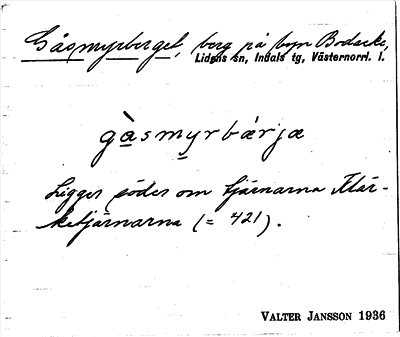 Gåsmyrberget, berg på byn Bodacke,
Lidens sn, Indals tg, Västernorrl. l.
gàsmyrbærjæ
Ligger söder om tjärnarna Klär-
ketjärnarna (= 421).
VALTER JANSSON 1936